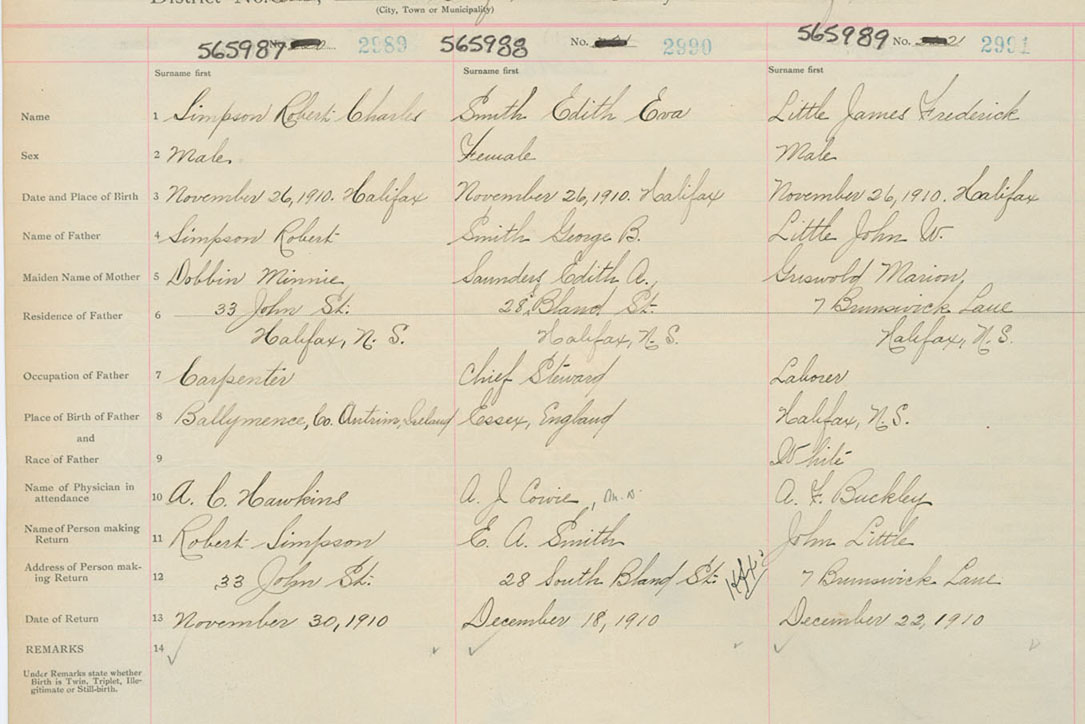 District No.
(City, Town or Municipality)
565987 2989 565988 No. 2990 565989 No. 2991
Surname first Surname first Surname first
Name 1 Simpson Robert Charles Smith Edith Eva Little James Frederick
Sex 2 Male. Female Male
Date and Place of Birth 3 November 26, 1910. Halifax November 26, 1910. Halifax November 26, 1910. Halifax
Name of Father 4 Simpson Robert Smith George B. Little John W.
Maiden Name of Mother 5 Dobbin Minnie Saunders Edith A. Griswold Marion
Residence of Father 6 33 John St. 28 Bland St. 7 Brunswick Lane
Halifax, N. S. Halifax, N. S. Halifax, N. S.
Occupation of Father 7 Carpenter Chief Steward Laborer
Place of Birth of Father 8 Ballymence, Co. Antrim, Ireland Essex, England Halifax, N. S.
and
Race of Father 9 White
Name of Physician in attendance 10 A. C. Hawkins A. J. Cowie, M. D. A. F. Buckley
Name of Person making Return 11 Robert Simpson E. A. Smith John Little
Address of Person making Return 12 33 John St. 28 South Bland St. Hfx. 7 Brunswick Lane
Date of Return 13 November 30, 1910 December 18, 1910 December 22, 1910
REMARKS 14
Under Remarks state whether
Birth is Twin, Triplet, Ille-
gitimate or Still-birth.